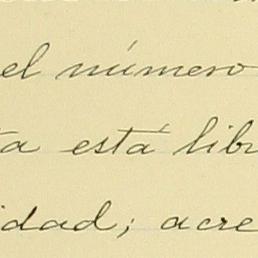 el número
ta está libr
idad; acre